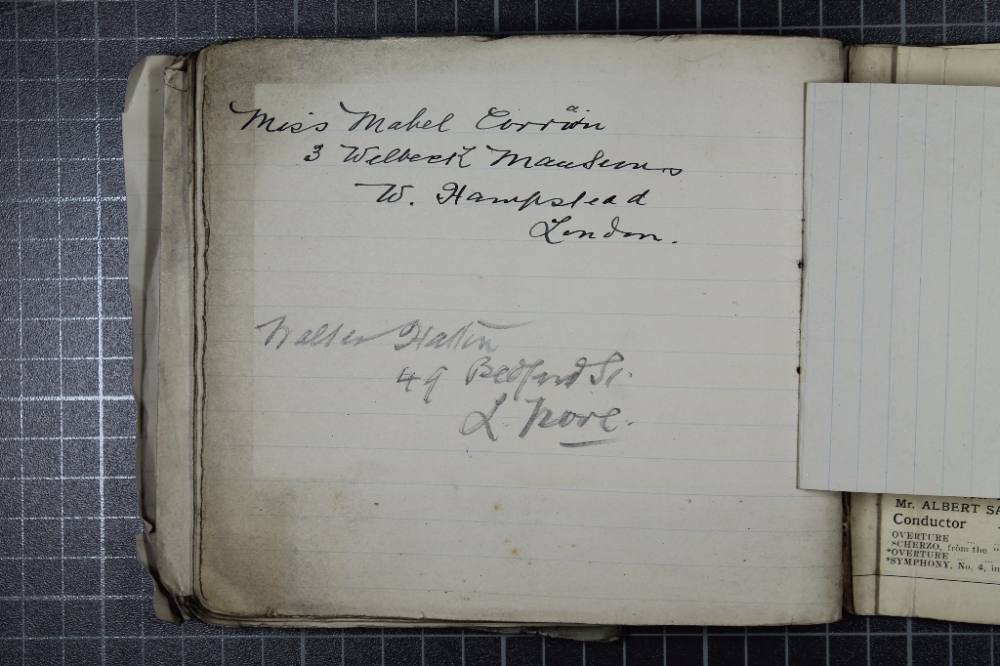 Miss Mabel
3 Welbeck Mansions
W. Hampstead
London.
Walter Hatton
49 Bedford St.
L. Pool.
Mr. ALBERT SA
Conductor
OVERTURE
SCHERZO, from the "
*OVERTURE
*SYMPHONY, No. 4, in